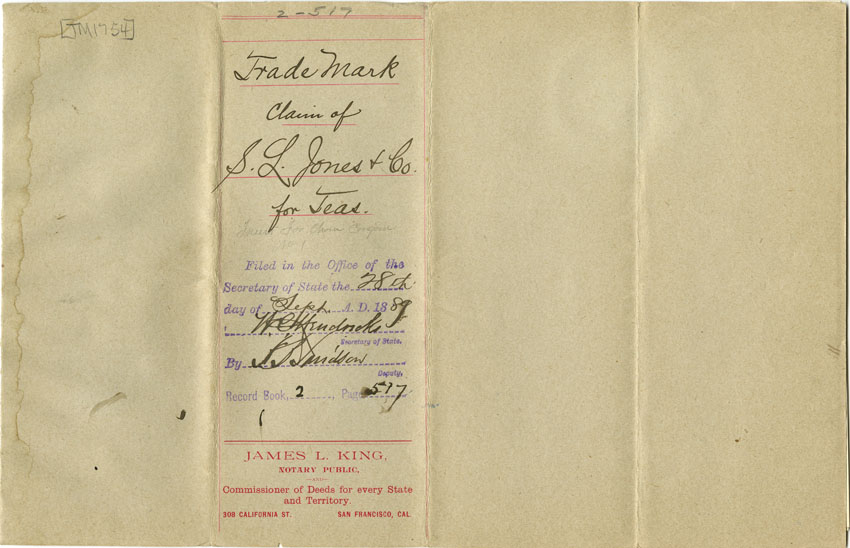 2-517
[TM1754]
Trade Mark
Claim of
S. L. Jones & Co.
for Teas.
Filed in the Office of the
Secretary of State the 28th
day of Sept. A. D. 1889
W. C. Hendricks
Secretary of State.
By
Davidson
Deputy.
Record Book, 2, Page 517
JAMES L. KING,
NOTARY PUBLIC,
—AND—
Commissioner of Deeds for every State
and Territory.
308 CALIFORNIA ST. SAN FRANCISCO, CAL